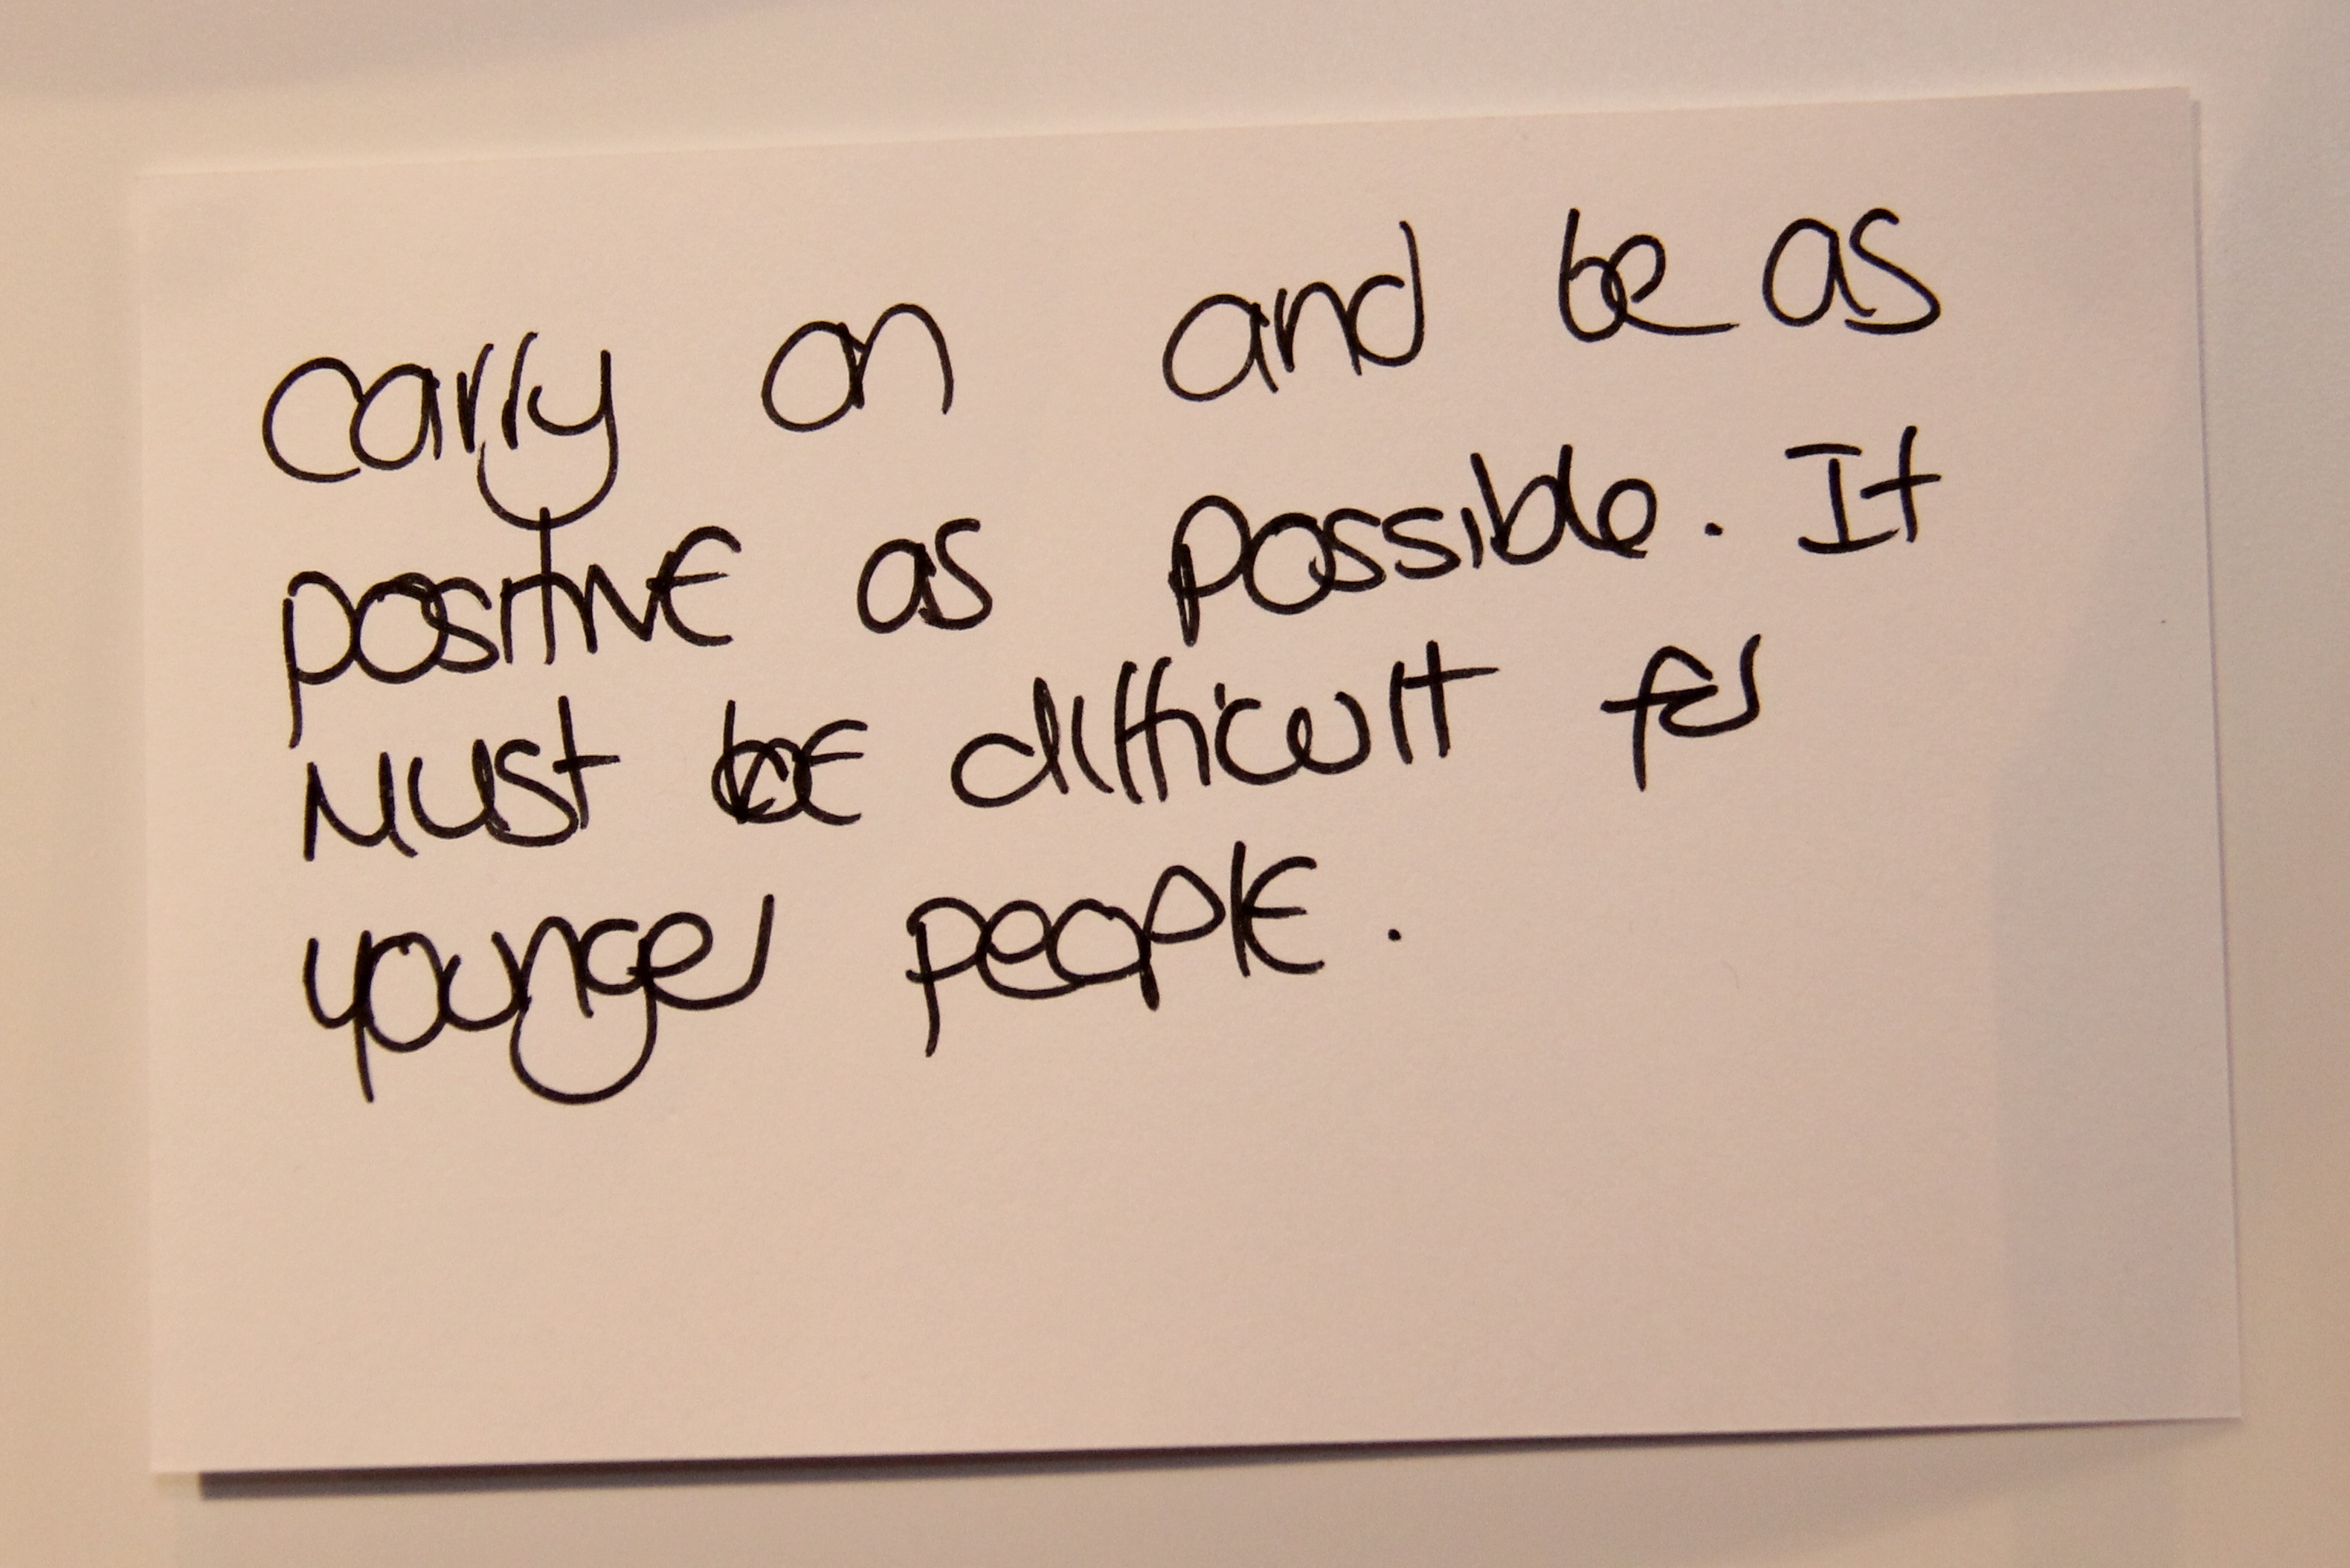 carry on and be as
positive as possible. It
must be difficult for
younger people.